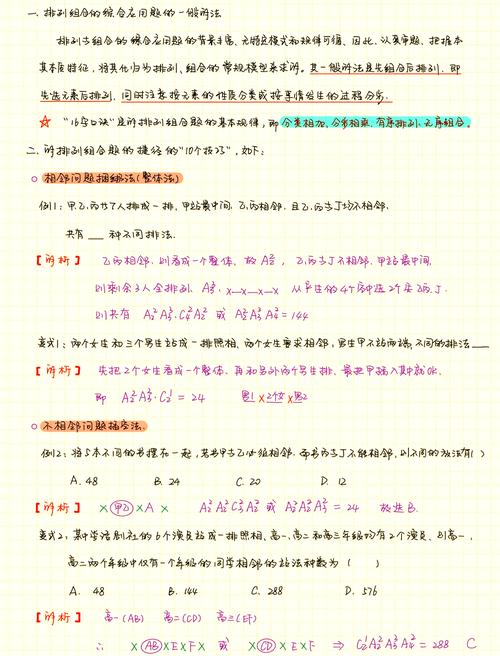 一. 排列组合的综合应用问题的一般解法
排列与组合的综合应用问题的背景丰富、无特定模式和规律可循, 因此, 认真审题, 把握本
其本质特征, 将其化归为排列、组合的常规模型来求解. 其一般解法是先组合后排列, 即
先选元素后排列, 同时注意按元素的性质分类或按事情发生的过程分步.
☆ "16字口诀"是解排列组合题的基本规律, 即 分类相加, 分步相乘, 有序排列, 无序组合。
二. 解排列组合题的捷径的"10个技巧", 如下:
○ 相邻问题捆绑法(整体法)
例1: 甲乙丙丁7人排成一排, 甲站最中间, 乙丙相邻, 且乙.丙与丁均不相邻.
共有 ___ 种不同排法.
[解析] 乙丙相邻, 则看成一个整体, 故 A₂², 乙,丙与丁不相邻, 甲站最中间,
则剩余3人全排列, A₃³. x—x—x—x 从产生的4个空中选2个
则共有 A₂²A₃³·C₄²A₂² 或 A₂²A₃³A₄² = 144
变式1: 两个女生和三个男生站成一排照相, 两个女生要求相邻, 男生甲不站两端, 不同的排法 ___
[解析] 先把2个女生看成一个整体, 再和另外两个男生排, 最后甲插入其中就OK.
即 A₂²A₃³·C₂¹ = 24 男1 x 2个女 x 男2
○ 不相邻问题插空法.
例2: 将5本不同的书摆在一起, 若书甲与乙必须相邻, 而书丙与丁不能相邻, 则不同的放法有( )
A. 48 B. 24 C. 20 D. 12
[解析] x 甲乙 x A x A₂²A₂²C₃²A₂² 或 A₂²A₂²A₃² = 24 故选B.
变式2, 某中学话剧社的6个演员站成一排照相, 高一、高二和高三年级均有2个演员, 则高一、
高二两个年级中仅有一个年级的同学相邻的站法种数为 ( )
A. 48 B. 144 C. 288 D. 576
[解析] 高一(AB) 高二(CD) 高三(EF)
∴ x AB x E x F x 或 x CD x E x F ⇒ C₂¹A₂²A₃³A₄² = 288 C